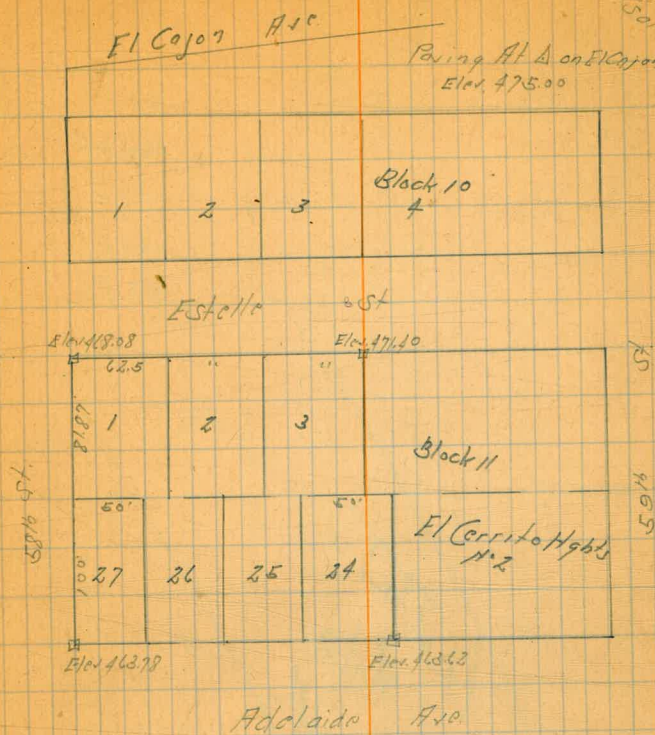 El Cajon Ave
Paving At Δ on El Cajon
Elev. 475.00
50'
Block 10
1 2 3 4
Estelle St
Elev 468.08
Elev. 471.40
62.5 " "
81.87
1 2 3
Block 11
58th St.
59th St
50' 50'
El Cerrito Hghts
No 2
100'
27 26 25 24
Elev. 463.78
Elev. 463.62
Adelaide Ave.